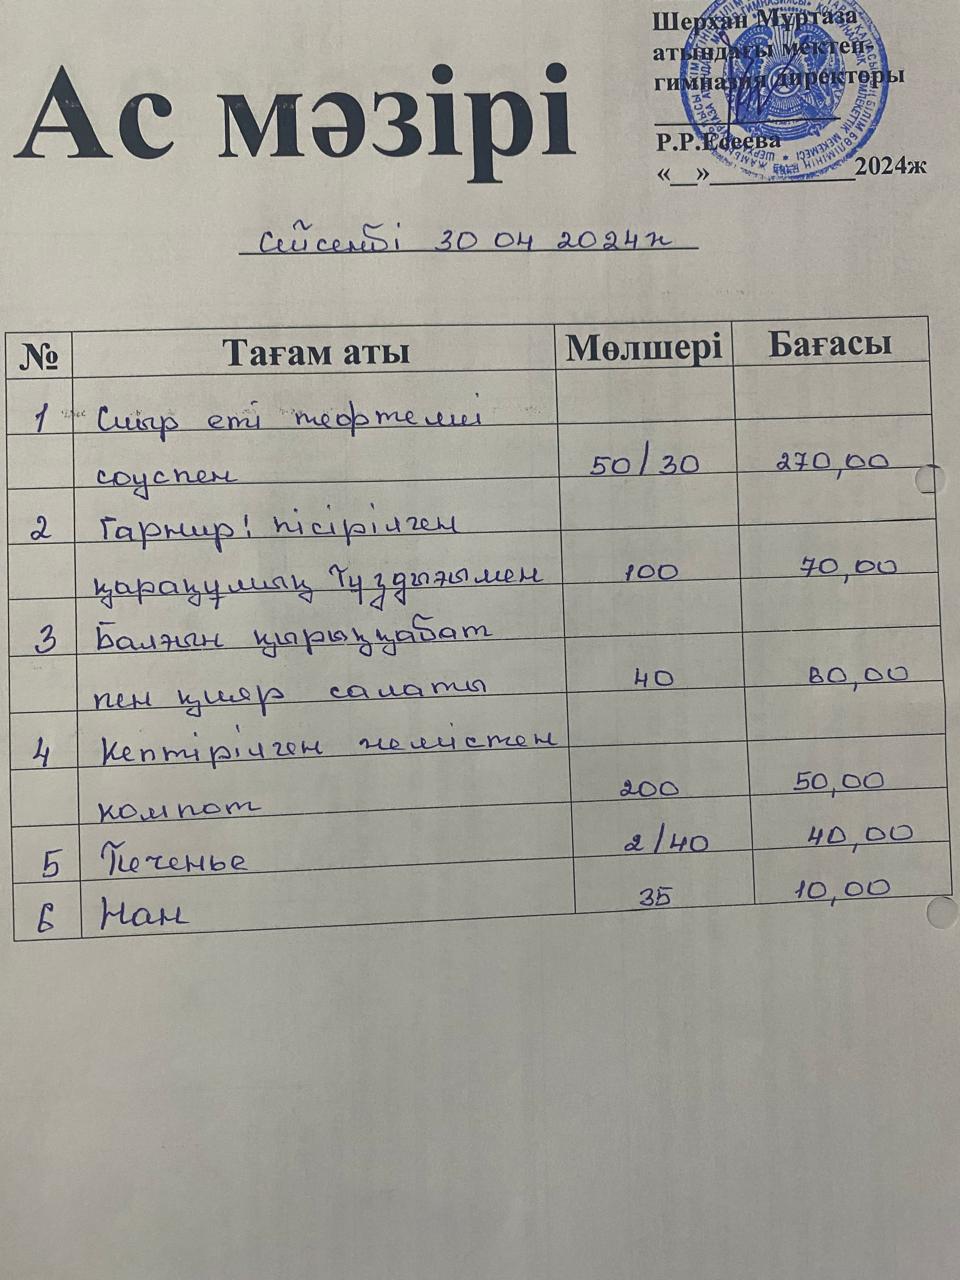 Шерхан Мұртаза
атындағы мектеп-
гимназия директоры
Р.Р.Есеева
«__»___________2024ж
Ас мәзірі
сейсенбі 30 04 2024ж
№ Тағам аты Мөлшері Бағасы
1 Сиыр еті тефтелиі
соуспен 50/30 270,00
2 Гарнир! пісірілген
қарақұмық тұздығымен 100 70,00
3 Балғын қырыққабат
пен қияр салаты 40 60,00
4 Кептірілген жемістен
компот 200 50,00
5 Печенье 2/40 40,00
6 Нан 35 10,00